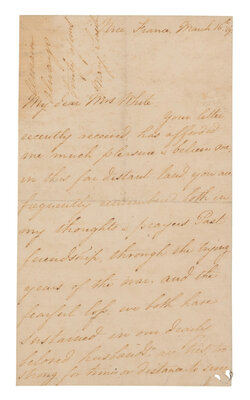 Nice, France, March 16th
My dear Mrs White
Your letter
recently received has afforded
me much pleasure & believe me
in this far distant land you are
frequently remembered both in
my thoughts & prayers Past
friendship, through the trying
years of the war and the
fearful loss, we both have
sustained in our dearly
beloved husbands are ties too
strong for time or distance to